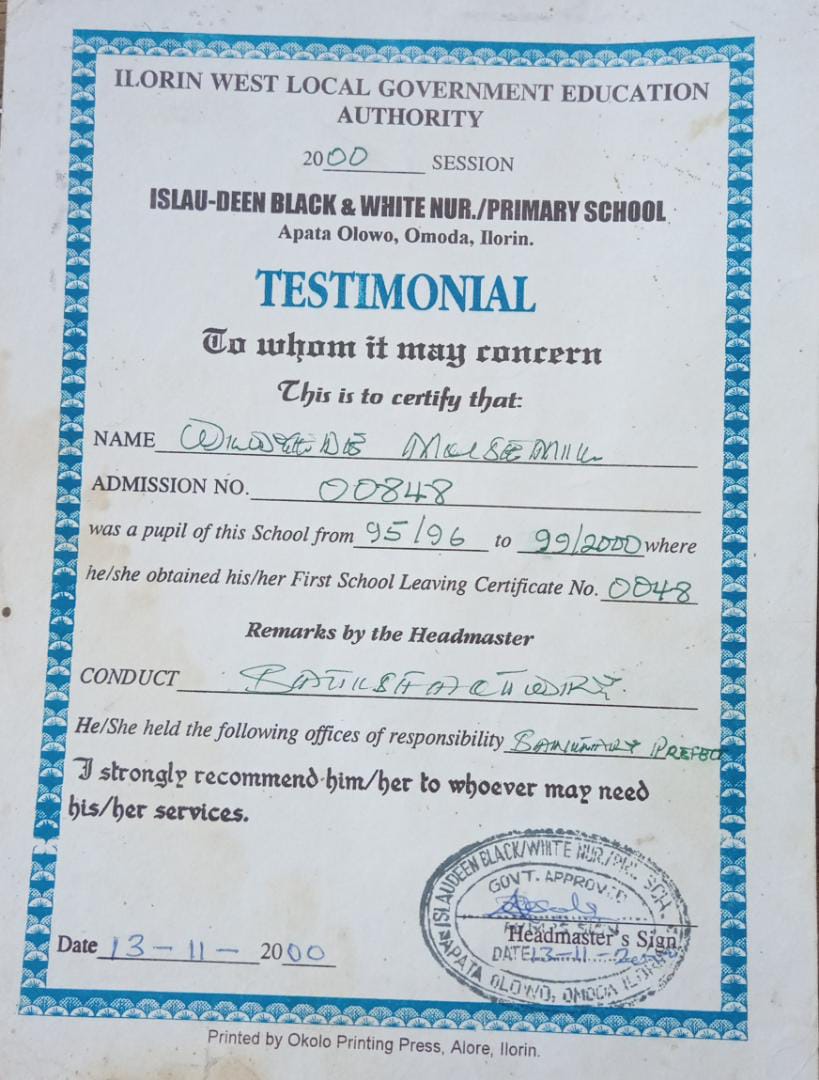 ILORIN WEST LOCAL GOVERNMENT EDUCATION
AUTHORITY
2000 SESSION
ISLAU-DEEN BLACK & WHITE NUR./PRIMARY SCHOOL
Apata Olowo, Omoda, Ilorin.
TESTIMONIAL
To whom it may concern
This is to certify that:
NAME
ADMISSION NO. 00848
was a pupil of this School from 95/96 to 99/2000 where
he/she obtained his/her First School Leaving Certificate No. 0048
Remarks by the Headmaster
CONDUCT
He/She held the following offices of responsibility
I strongly recommend him/her to whoever may need
his/her services.
ISLAUDEEN BLACK/WHITE NUR./PRI. SCH.
GOVT. APPROVED
Headmaster's Sign
Date 13-11-2000
DATE 13-11-
APATA OLOWO, OMODA ILORIN
Printed by Okolo Printing Press, Alore, Ilorin.